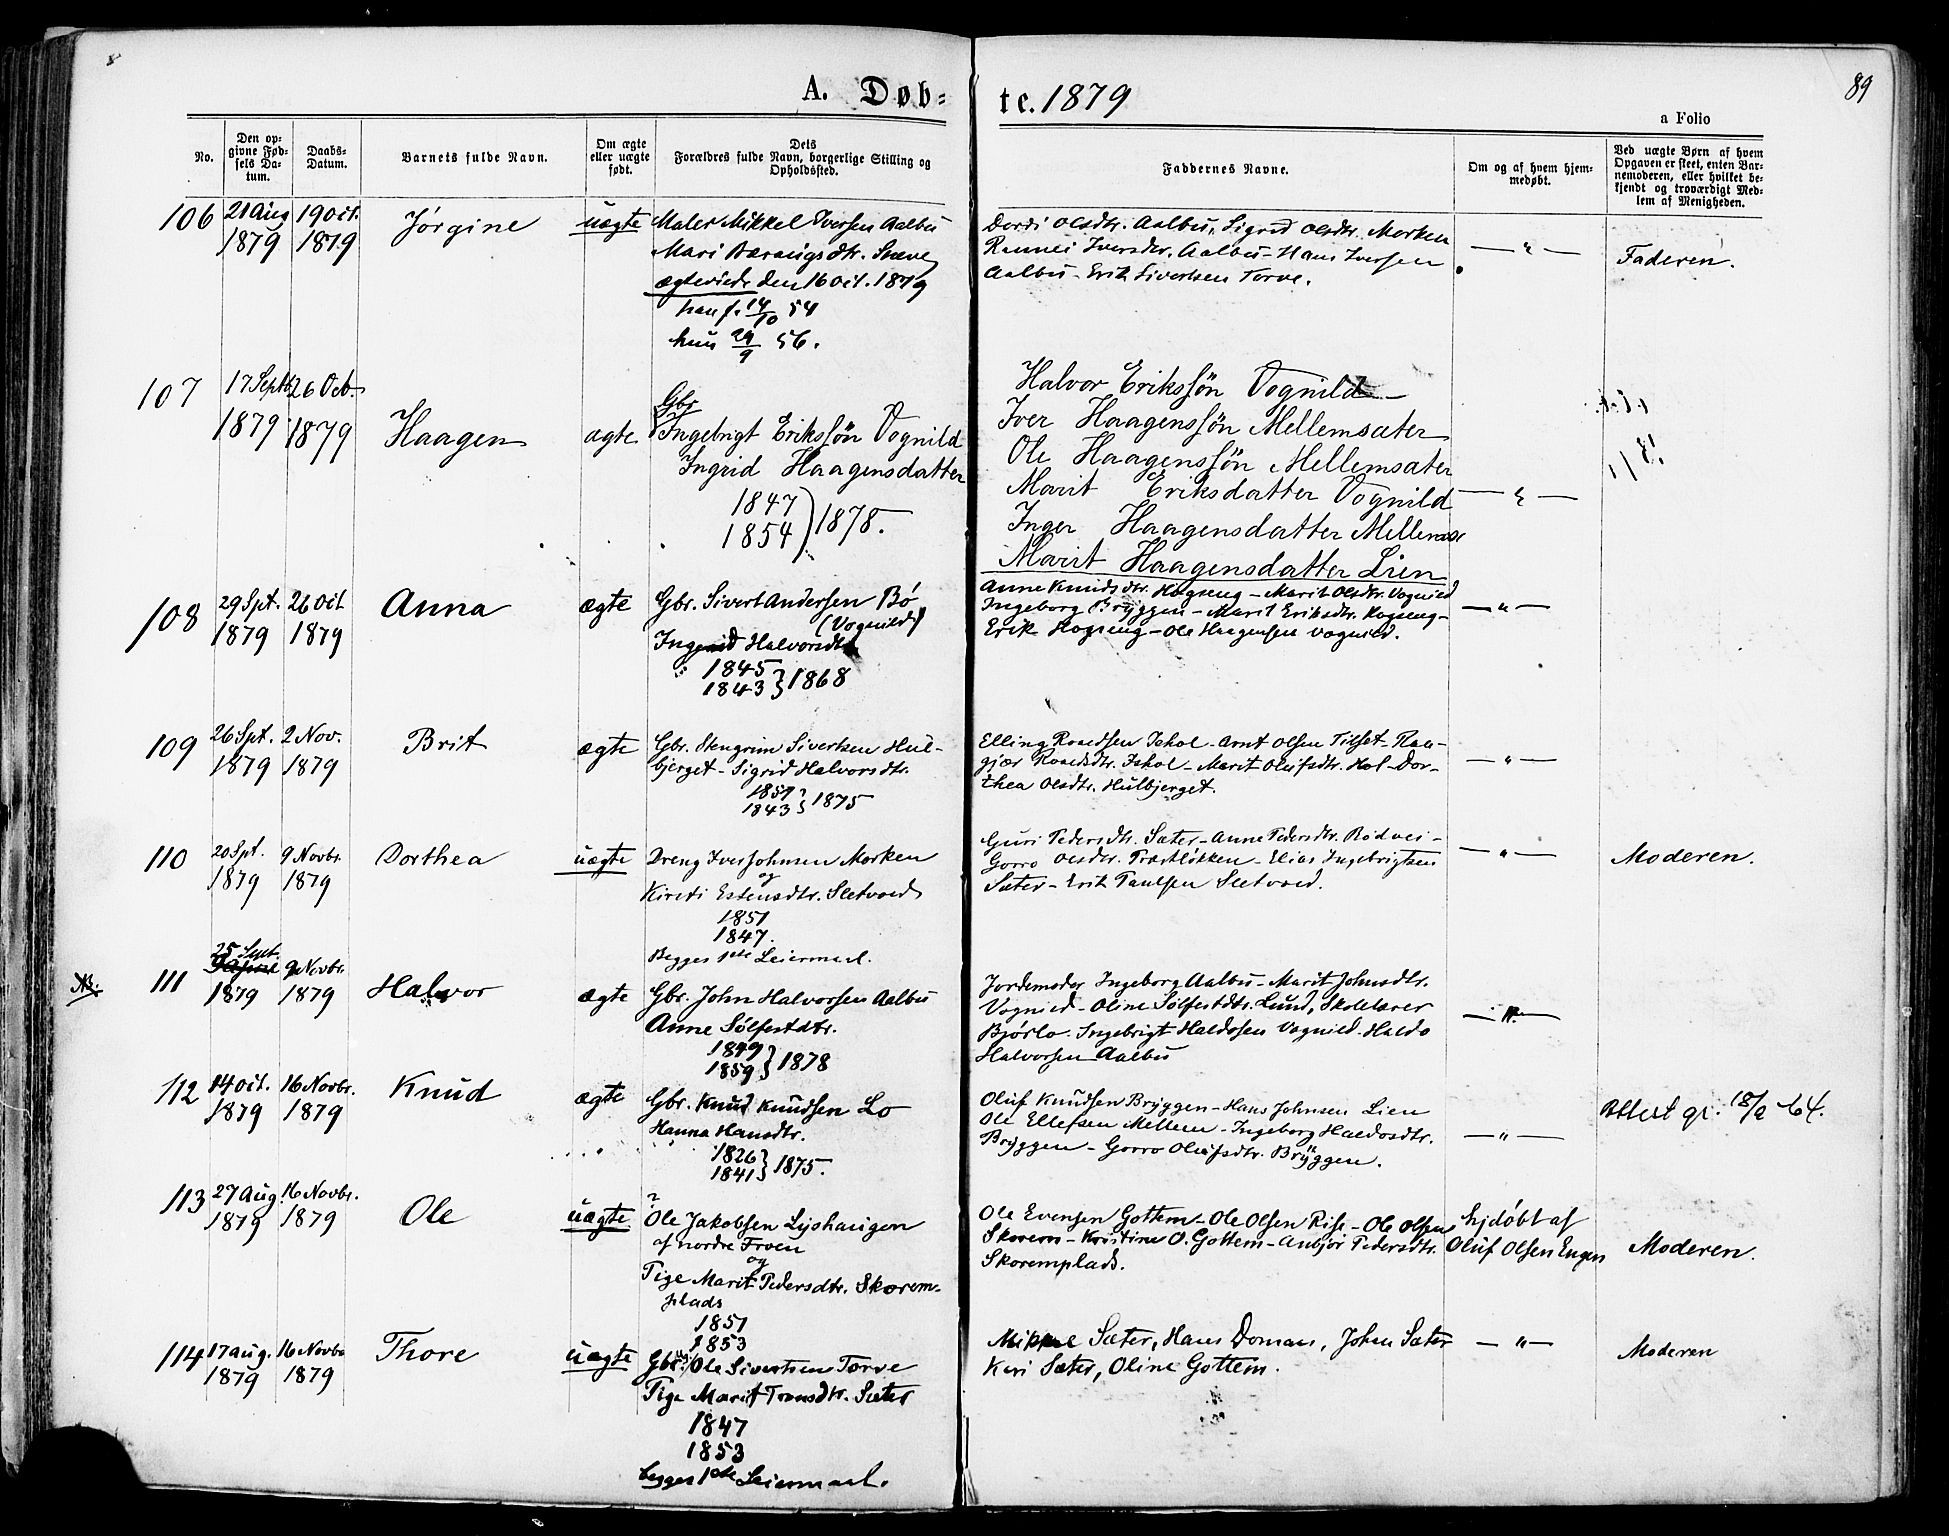 89
A. Døb=
te. 1879
a Folio
No.
Den op-
givne Fød-
sels Da-
tum.
Daabs-
Datum.
Barnets fulde Navn.
Om ægte
eller uægte
født.
Dets
Forældres fulde Navn, borgerlige Stilling og
Opholdssted.
Faddernes Navne.
Om og af hvem hjem-
medøbt.
Ved uægte Børn af hvem
Opgaven er skeet, enten Bar-
nemoderen, eller hvilket be-
kjendt og troværdigt Med-
lem af Menigheden.
106
21 Aug
1879
19 Oct.
1879
Jørgine
uægte
Maler Mikkel Iversen Aalbu
Mari Bæraugsdtr. Sneve
ægteviede den 16 Oct. 1879
han f. 14/10 54
hun 29/9 56.
Dordi Olsdtr. Aalbu, Sigrid Olsdtr. Morken
Rannei Iversdtr. Aalbu - Hans Iversen
Aalbu - Erik Sivertsen Torve.
— " —
Faderen.
107
17 Septb.
1879
26 Octb.
1879
Haagen
ægte
Gbr
Ingebrigt Erikssøn Vognild
Ingrid Haagensdatter
1847
1854 ) 1878.
Halvor Erikssøn Vognild
Iver Haagenssøn Mellemsæter
Ole Haagenssøn Mellemsæter
Marit Eriksdatter Vognild
Inger Haagensdatter Mellems
Marit Haagensdatter Lien
— " —
108
29 Spt.
1879
26 Oct
1879
Anna
ægte
Gbr. Sivert Andersen Bø
(Vognild)
Halvorsdtr
1845
1843 } 1868
Anne Knudsdtr. Hogseng - Marit Olsdtr. Vognild
Ingeborg Bryggen - Marit Eriksdtr. Hogseng -
Erik Hogseng - Ole Haagensen Vognild.
— " —
109
26 Spt.
1879
2 Nov.
1879
Brit
ægte
Gbr. Stengrim Sivertsen Hul-
bjerget - Sigrid Halvorsdtr.
1851
1843 } 1875
Elling Roaldsen Ishol - Arnt Olsen Tilset - Ran-
gjær Roaldsdtr. Ishol - Marit Olufsdtr. Hol - Dor-
thea Olsdtr. Hulbjerget.
— " —
110
20 Spt.
1879
9 Novbr.
1879
Dorthea
uægte
Dreng Iver Johnsen Morken
og
Kirsti Estensdtr. Sletvold
1851
1847.
Begges 1ste Leiermaal.
Guri Pedersdtr. Sæter - Anne Pedersdtr. Rødvei -
Gorro Olsdtr. Præstløkken - Elias Ingebrigtsen
Sæter - Erik Paulsen Sletvold.
— " —
Moderen.
NB.
111
25 Sept.
1879
9 Novbr.
1879
Halvor
ægte
Gbr. John Halvorsen Aalbu
Anne Sølfestdtr.
1849
1859 } 1878
Jordemoder Ingeborg Aalbu - Marit Johnsdtr.
Vognild - Oline Sølfestdtr. Lund, Skolelærer
Bjørlo - Ingebrigt Haldosen Vognild - Haldo
Halvorsen Aalbu
— " —
112
14 Oct.
1879
16 Novbr.
1879
Knud
ægte
Gbr. Knud Knudsen Lo
Hanna Hansdtr.
1826
1841 } 1875.
Oluf Knudsen Bryggen - Hans Johnsen Lien
Ole Ellefsen Mellem - Ingeborg Haldosdtr.
Bryggen - Gorro Olufsdtr. Bryggen.
— " —
Attest
113
27 Aug.
1879
16 Novbr.
1879
Ole
uægte
?
Ole Jakobsen Lyshaugen
af nordre Froen
og
Pige Marit Pedersdtr. Skorem-
plads
1851
1853
Ole Evensen Gottem - Ole Olsen Rise - Ole Olsen
Skorem - Kristine O. Gottem - Anbjør Pedersdtr.
Skoremplads.
hjdøbt af
Oluf Olsen Engen
Moderen.
114
17 Aug.
1879
16 Novbr
1879
Thore
uægte
Gbr. Ole Sivertsen Torve
Pige Marit Tronsdtr. Sæter
1847
1853
begges 1ste Leiermaal.
Mikkel Sæter, Hans Domaas, John Sæter
Kari Sæter, Oline Gottem.
— " —
Moderen